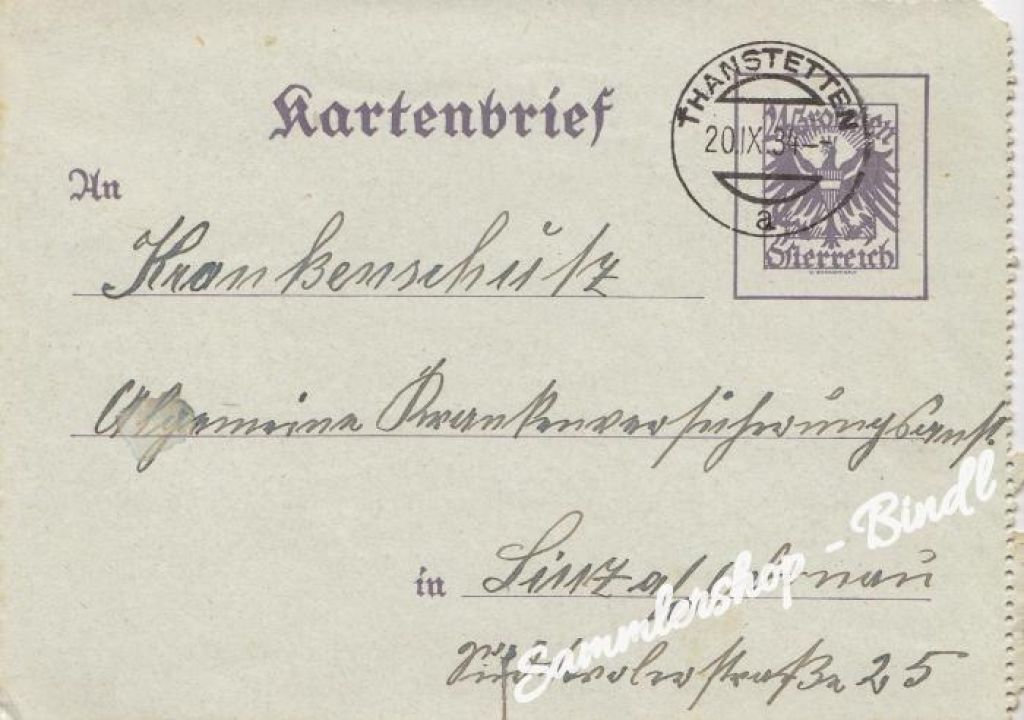 Kartenbrief
THANSTETTEN
20.IX.34
a
24 Groschen
Österreich
An
Krankenschutz
Allgemeine Krankenversicherungsanst.
in Linz a/ Donau
Südtirolerstraße 25
Sammlershop - Bindl